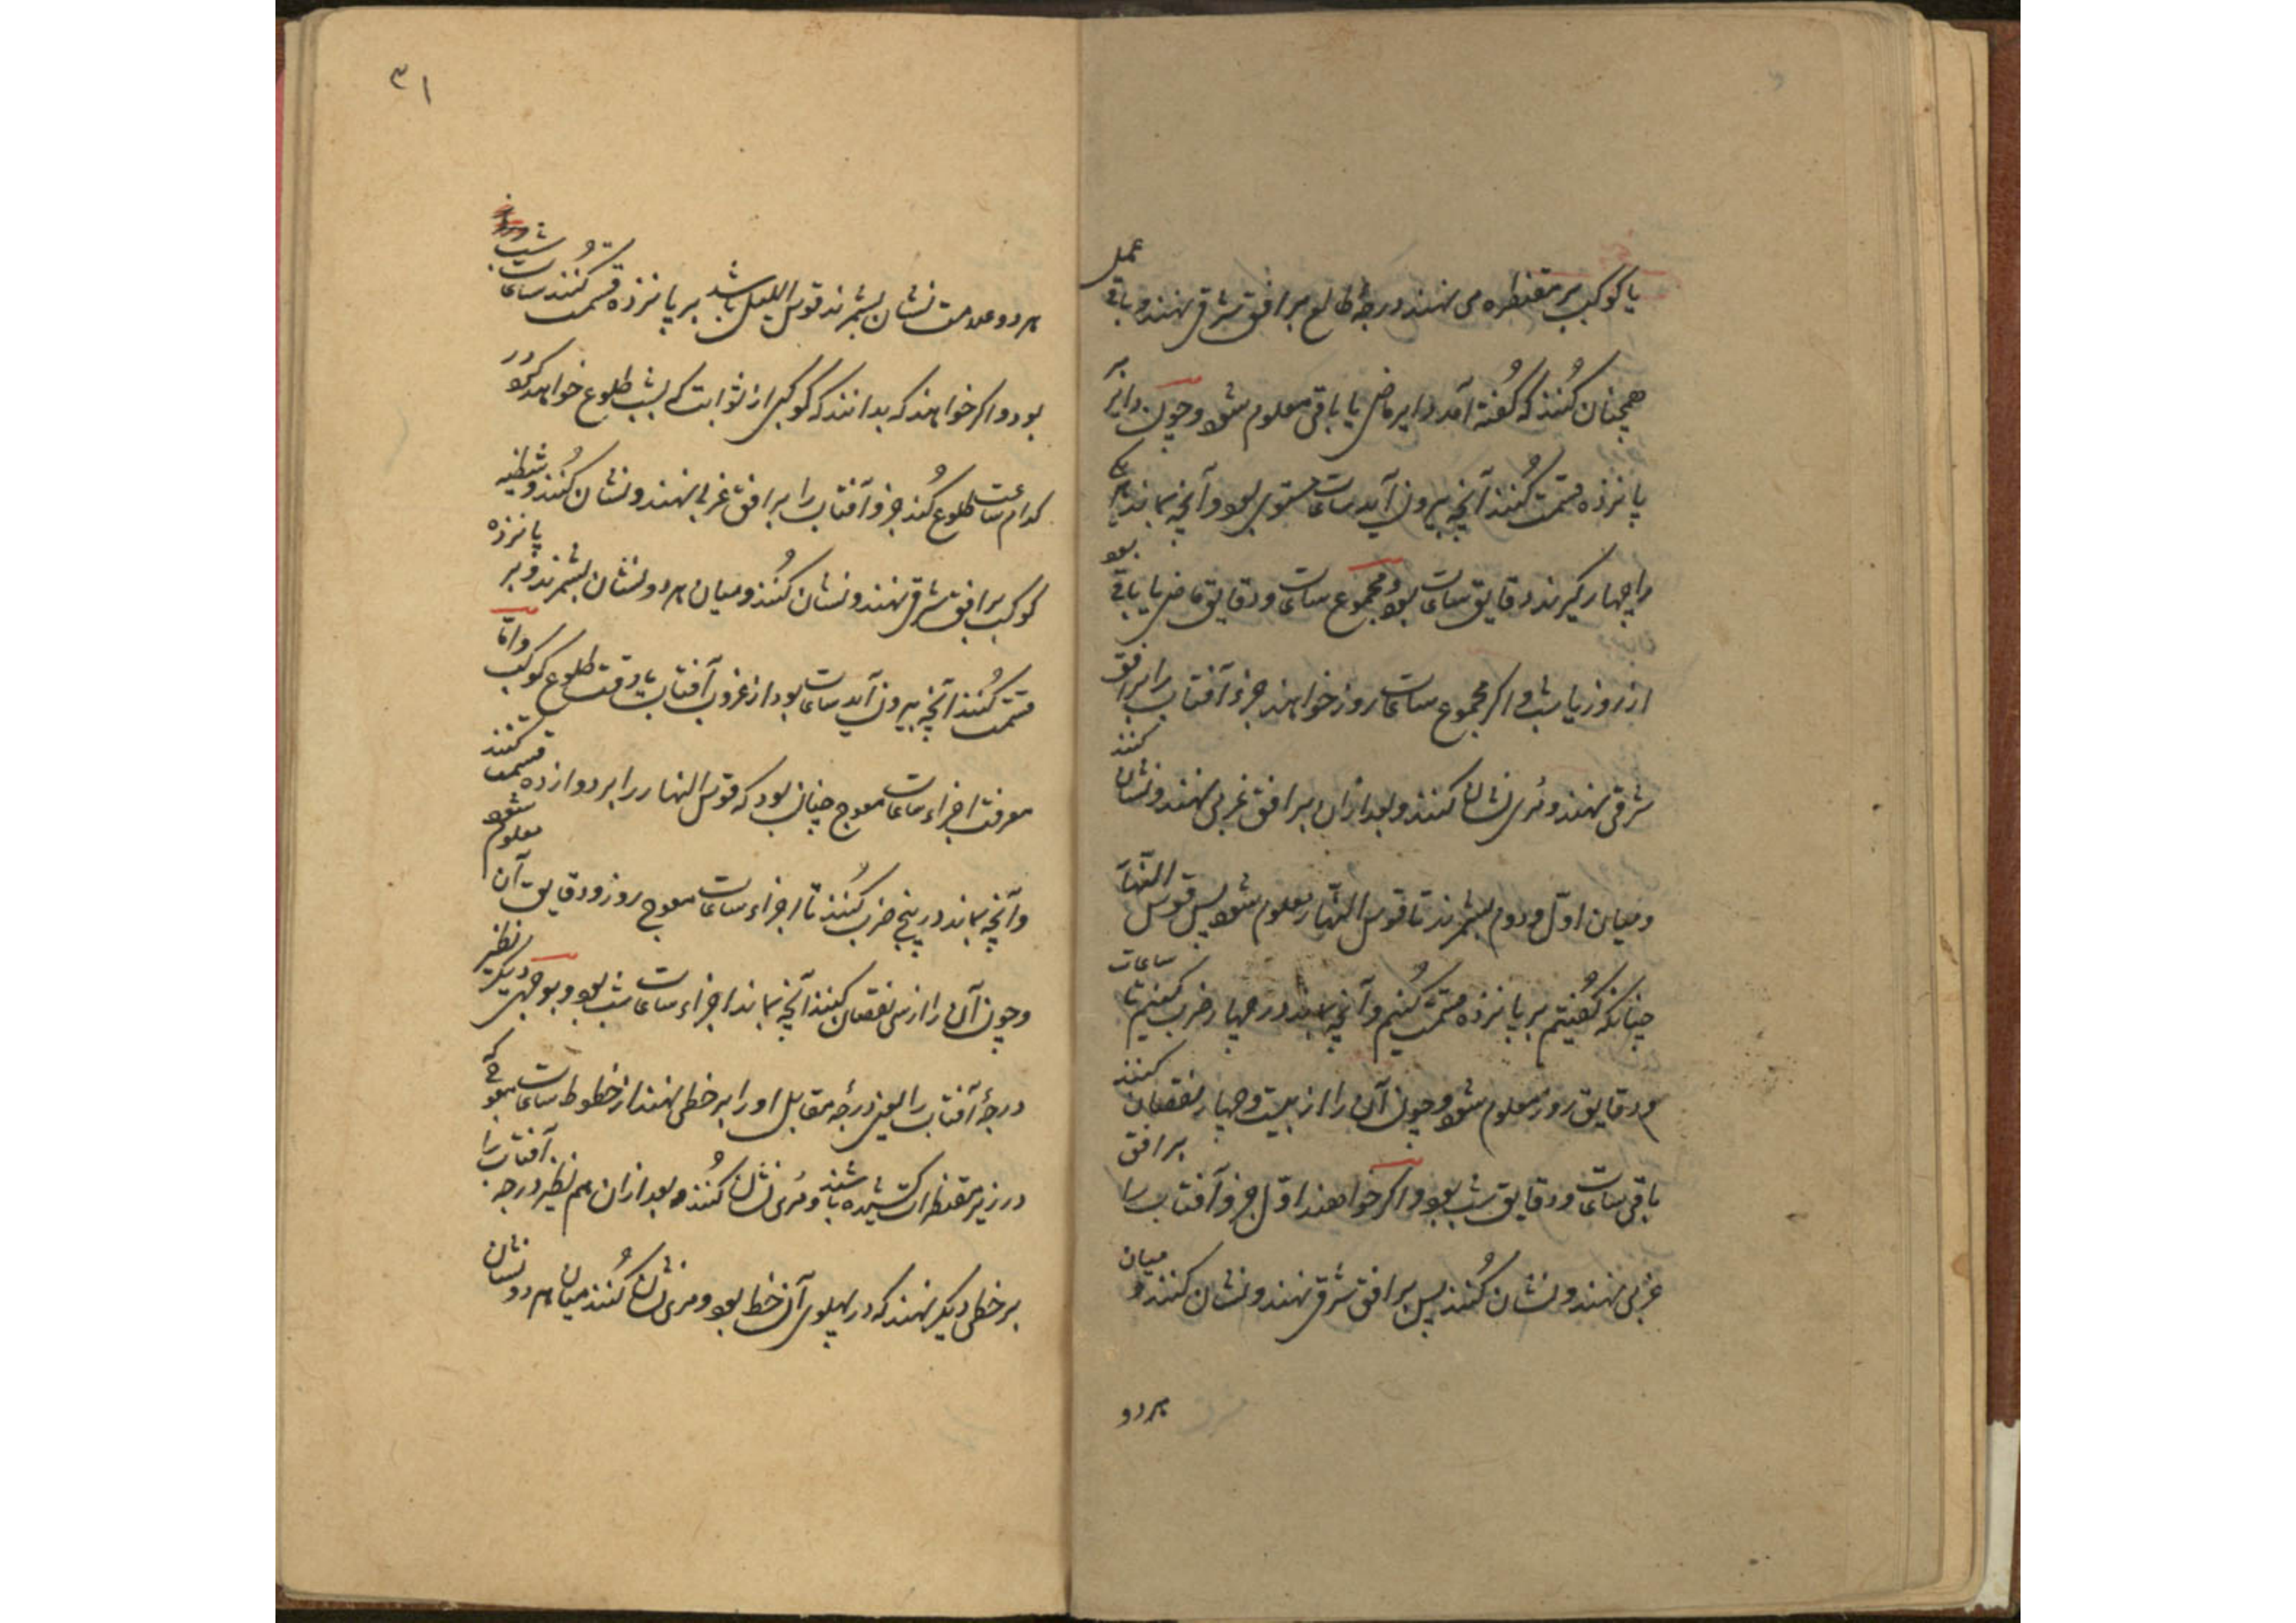 یا کوکب بر مقنطره می نهند درجهٔ طالع بر افق شرقی نهند و باقی عمل
همچنان کنند که گفته آمد دایر ماضی یا باقی معلوم شود و چون دایر بر
پانزده قسمت کنند آنچه بیرون آید ساعات مستوی بود و آنچه بماند
را چهار گیرند دقایق ساعات بود و مجموع ساعات و دقایق ماضی یا باقی بود
از روز یا شب و اگر مجموع ساعات روز خواهند جزء آفتاب را بر افق
شرقی نهند و مری نشان کنند و بعد از آن بر افق غربی نهند و نشان کنند
و میان اول و دوم بشمرند تا قوس النهار معلوم شود پس قوس النهار
چنانکه گفتیم بر پانزده قسمت کنیم و آنچه بماند در چهار ضرب کنیم تا ساعات
و دقایق روز معلوم شود و چون آن را از بیست و چهار نقصان کنند
باقی ساعات و دقایق شب بود و اگر خواهند اول جزو آفتاب را بر افق
غربی نهند و نشان کنند پس بر افق شرقی نهند و نشان کنند و میان
هر دو
٣١
هر دو علامت نشان بشمرند قوس اللیل باشد بر پانزده قسمت کنند ساعات شب
بود و اگر خواهند که بدانند که کوکبی از ثوابت که بشب طلوع خواهد کرد در
کدام ساعت طلوع کند جزو آفتاب را بر افق غربی نهند و نشان کنند و شظیه
کوکب بر افق شرقی نهند و نشان کنند و میان هر دو نشان بشمرند و بر پانزده
قسمت کنند آنچه بیرون آید ساعات بود از غروب آفتاب تا وقت طلوع کوکب و اما
معرفت اجزاء ساعات معوج چنان بود که قوس النهار را بر دوازده قسمت کنند
و آنچه بماند در پنج ضرب کنند تا اجزاء ساعات معوج روز و دقایق آن معلوم شود
و چون آن را از سی نقصان کنند آنچه بماند اجزاء ساعات شب بود و بوجهی دیگر نظیر
درجهٔ آفتاب را یعنی درجهٔ مقابل او را بر خطی نهند از خطوط ساعات معوج که
در زیر مقنطرات کشیده باشند و مری نشان کنند و بعد از آن هم نظیر درجه آفتاب را
بر خطی دیگر نهند که در پهلوی آن خط بود و مری نشان کنند میان هر دو نشان